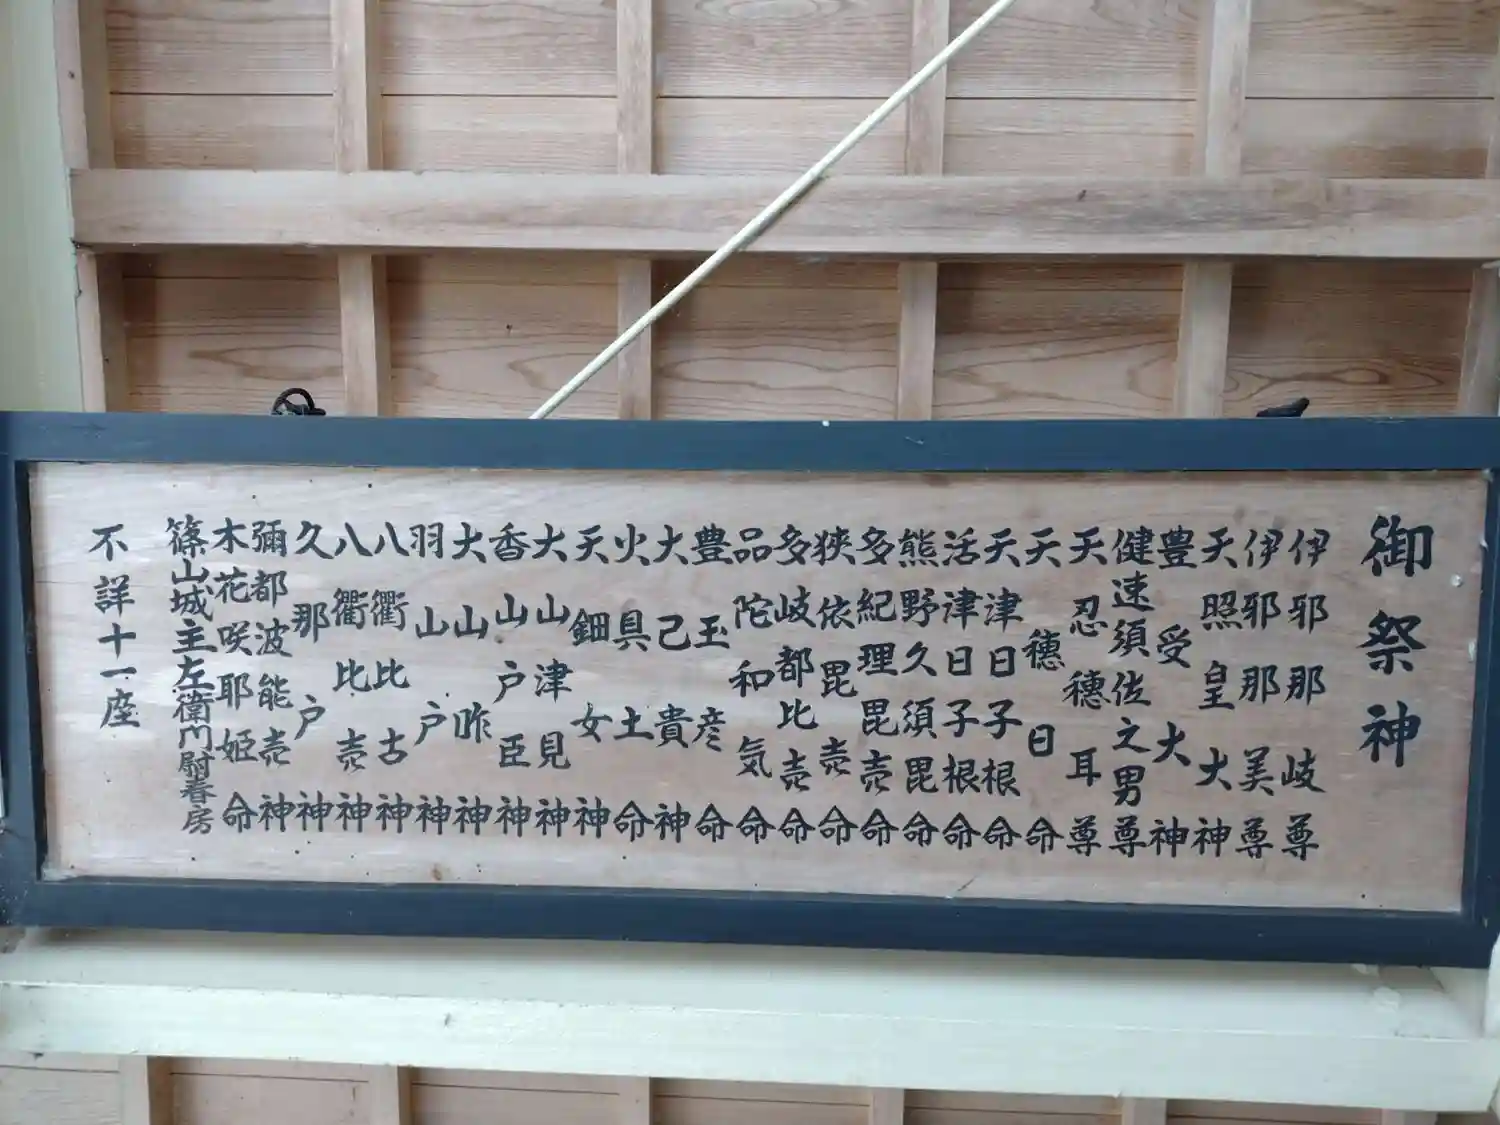 御祭神
伊邪那岐尊
伊邪那美尊
天照皇大神
豊受大神
健速須佐之男尊
天忍穗耳尊
天穗日命
天津日子根命
活津日子根命
熊野久須毘命
多紀理毘売命
狭依毘売命
多岐都比売命
品陀和気命
豊玉彦命
大己貴神
火具土命
天鈿女神
大山津見神
香山戸臣神
大山咋神
羽山戸神
八衢比古神
八衢比売神
久那戸神
彌都波能売神
木花咲耶姫命
篠山城主左衛門尉春房
不詳十一座